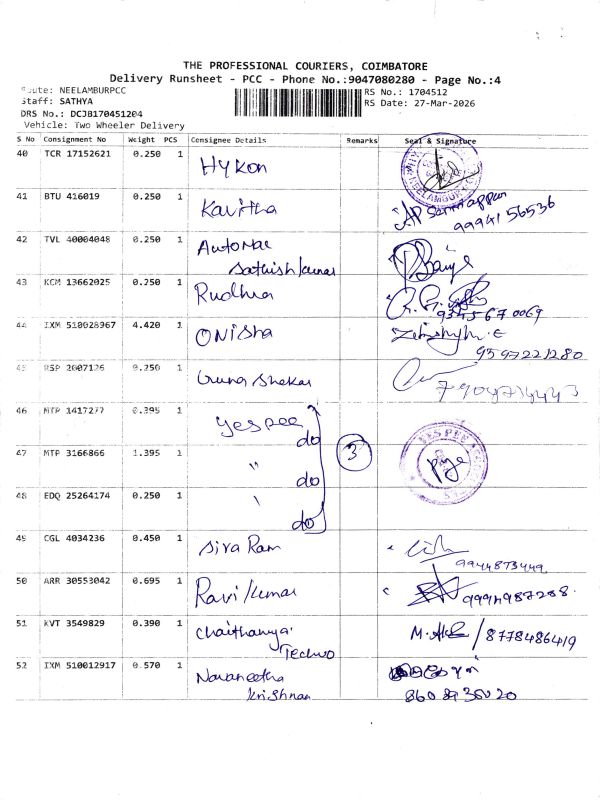 THE PROFESSIONAL COURIERS, COIMBATORE
Delivery Runsheet - PCC - Phone No.:9047080280 - Page No.:4
Route: NEELAMBURPCC
Staff: SATHYA
DRS No.: DCJB170451204
Vehicle: Two Wheeler Delivery
RS No.: 1704512
RS Date: 27-Mar-2026
S No Consignment No Weight PCS Consignee Details Remarks Seal & Signature
40 TCR 17152621 0.250 1 Hykon
41 BTU 416019 0.250 1 Kavitha
9994156536
42 TVL 40004048 0.250 1 Automac
Sathishkumar
43 KCM 13662025 0.250 1 Rudhra
9345670069
44 IXM 510028967 4.420 1 Onisha
9597221280
45 RSP 2007126 0.250 1 Guna Shekar
46 MTP 1417277 0.395 1 Yespee do
47 MTP 3166866 1.395 1 " do 3 YESPEE
48 EDQ 25264174 0.250 1 " do
49 CGL 4034236 0.450 1 Siva Ram
9944873449
50 ARR 30553042 0.695 1 Ravikumar 9994987288.
51 KVT 3549829 0.390 1 Chaithanya 8778486419
Techno
52 IXM 510012917 0.570 1 Navaneetha
Krishnan